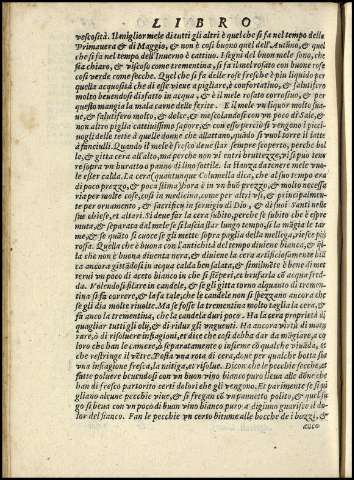 LIBRO
vescosità. Il miglior mele di tutti gli altri è quel che si fa nel tempo della
Primavera & di Maggio, & non è così buono quel dell'Autũno, & quel
che si fa nel tempo dell'Inverno è cattivo. I segni del buon mele sono, che
sia chiaro, & viscoso come trementina, si fa il mel rosato con buone rose
così verde come secche. Quel che si fa delle rose fresche è più liquido per
quella acquosità che di esse viene a pigliare, è confortativo, & salutifero
molto bevendosi disfatto in acqua, & è il mele rosato corrosivo, & per
questo mangia la mala carne delle ferite. E il mele un liquor molto
& salutifero molto, & dolce, & mescolandosi con un poco di Sale,
non altro piglia cattivissimo sapore, & con esso perciò si vengono i
delle tette à quelle donne che allattano, quado si vuol torre il latte
à fanciulli. Quando il mele è fresco deve star sempre scoperto, perche bolle,
& gitta cera all'alto, ma perche non vi entri bruttezze, vi si può tenere
sopra un buratto o panno di lino sottile. La stanza da tener mele vuole
esser calda. La cera (quantunque Columella dica, che al suo tempo era
di poco prezzo, & poca stima) hora è in un buõ prezzo, & molto necessaria
per molte cose, così in medicina, come per altri usi, & principalmente
per ornamento, & sacrificij in servigio di Dio, & di suoi Santi nelle
sue chiese, & altari. Si deve far la cera subito, perche se subito che è
& separata dal mele si lascia star lungo tempo, si la magia le tarme,
& se quado si cuoce se gli mette sopra paglia della mellega, riesce più
rossa. Quella che è buona con l'antichità del tempo diviene bianca, &
la che non è buona diventa nera, & diviene la cera artificiosamente
ancora gittadosi in acqua calda ben salata, & similmẽte è bene di
vi un poco di aceto bianco in che si e brusarla cõ acqua fredda.
Volendosi filare in candele, & se gli gitta torno alquanto di trementina
si fa correre, & la fa tale, che le candele non si spezzano ancora che
se gli dia molte rivolte. Ma se fosse la trementina molta taglia la cera, &
fa anco la trementina, che la candela duri poco. Ha la cera proprietà di
quagliar tutti gli olij, & di ridur gli unguenti. Ha ancora virtù di
rare, ò di risolvere infiagioni, et dice che così debba dar da mãgiare,
loro che han le camere, ò separatamente ò insieme cõ qualche vivãda, et
che restringe il vẽtre. Posta una rota di cera, dove per qualche botta sia
una infiagione fresca, la mitiga, et risolve. Dicon che le pecchie secche, et
fatte polvere bevendosi con un buon vino bianco puro lieva alle dõne che
han di fresco partorito certi dolori che gli vengono. Et parimente se si
gliano alcune pecchie vive, & si fregan cõ un pannetto polito, & quel
go si bevа con un poco di buon vino bianco puro à digiuno guarisce il
lor del fianco. Fan le pecchie un certo bitume alle bocche de i bozzi, &
anco